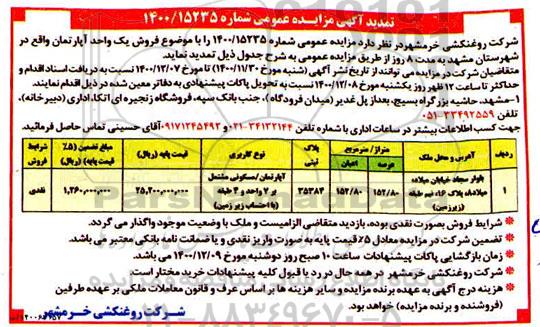 تمدید آگهی مزایده عمومی شماره ۱۴۰۰/۱۵۲۳۵
شرکت روغنکشی خرمشهر در نظر دارد مزایده عمومی شماره ۱۴۰۰/۱۵۲۳۵ را با موضوع فروش یک واحد آپارتمان واقع در
شهرستان مشهد به مدت ۸ روز از طریق مزایده عمومی به شرح جدول ذیل تمدید نماید.
متقاضیان شرکت در مزایده می توانند از تاریخ نشر آگهی (شنبه مورخ ۱۴۰۰/۱۱/۳۰) تا مورخ ۱۴۰۰/۱۲/۰۷ نسبت به دریافت اسناد اقدام و
حداکثر تا ساعت ۱۲ ظهر روز یکشنبه مورخ ۱۴۰۰/۱۲/۰۸ نسبت به تحویل پاکات پیشنهادی به دفاتر معین شده در ذیل اقدام نمایند.
۱-مشهد، حاشیه بزرگراه بسیج، بعد از پل غدیر (میدان فرودگاه)، جنب بانک سپه، فروشگاه زنجیره ای اتکا، اداری (دبیرخانه)،
تلفن ۳۳۴۹۲۵۵۹-۰۵۱
جهت کسب اطلاعات بیشتر در ساعات اداری با شماره تلفن ۳۴۱۳۲۱۴۴-۰۲۱ و ۰۹۱۷۱۲۴۵۴۹۲ آقای حسینی تماس حاصل فرمائید.
ردیف آدرس و محل ملک متراژ/ مترمربع عرصه اعیان پلاک ثبتی نوع کاربری قیمت پایه (ریال) مبلغ تضمین (۵٪ قیمت پایه) (ریال) شرایط فروش
۱ بلوار سجاد، خیابان میلاد، میلاد ۸، پلاک ۱۶، نیم طبقه (زیرزمین) ۱۵۲/۸۰ ۱۵۲/۸۰ ۳۵۳۸۴ آپارتمان/مسکونی مشتمل بر ۷ واحد و ۴ طبقه (با احتساب زیر زمین) ۲۵,۲۰۰,۰۰۰,۰۰۰ ۱,۲۶۰,۰۰۰,۰۰۰ نقدی
* شرایط فروش بصورت نقدی بوده، بازدید متقاضی الزامیست و ملک با وضعیت موجود واگذار می گردد.
* تضمین شرکت در مزایده معادل ۵٪ قیمت پایه به صورت واریز نقدی و یا ضمانت نامه بانکی معتبر می باشد.
* زمان بازگشایی پاکات پیشنهادات ساعت ۱۰ صبح روز دوشنبه مورخ ۱۴۰۰/۱۲/۰۹ می باشد.
* شرکت روغنکشی خرمشهر در همه حال در رد یا قبول کلیه پیشنهادات خرید مختار است.
* هزینه درج آگهی به عهده برنده مزایده و سایر هزینه ها بر اساس عرف و قانون معاملات ملکی بر عهده طرفین
(فروشنده و برنده مزایده) خواهد بود.
شرکت روغنکشی خرمشهر
۰۲۱-۸۸۳۴۹۶۷۰-۵